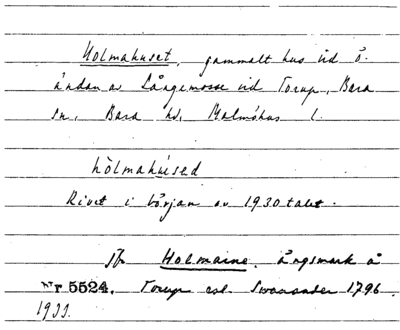 Holmahuset, gammalt hus vid ö.
ändan av Långemosse vid Torup, Bara
sn, Bara hd, Malmöhus l.
hòlmahúsed
Rivet i början av 1930 talet.
Jfr Holmarne, ängsmark å
Nr 5524. Torup enl. Svanander 1796.
1933.